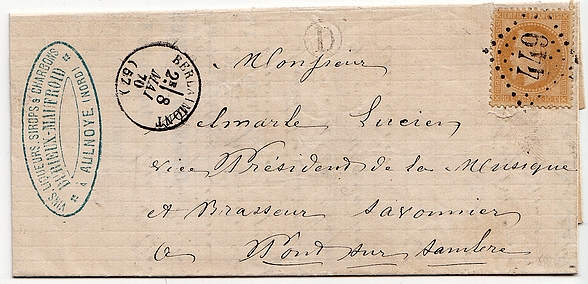 VINS LIQUEURS, SIROPS & CHARBONS
À AULNOYE (NORD)
BERLAIMONT
2E
8
MAI
70
(57)
D
447
Monsieur
Delmarle Lucien
Vice Président de la Musique
et Brasseur Savonnier
à Pont sur Sambre